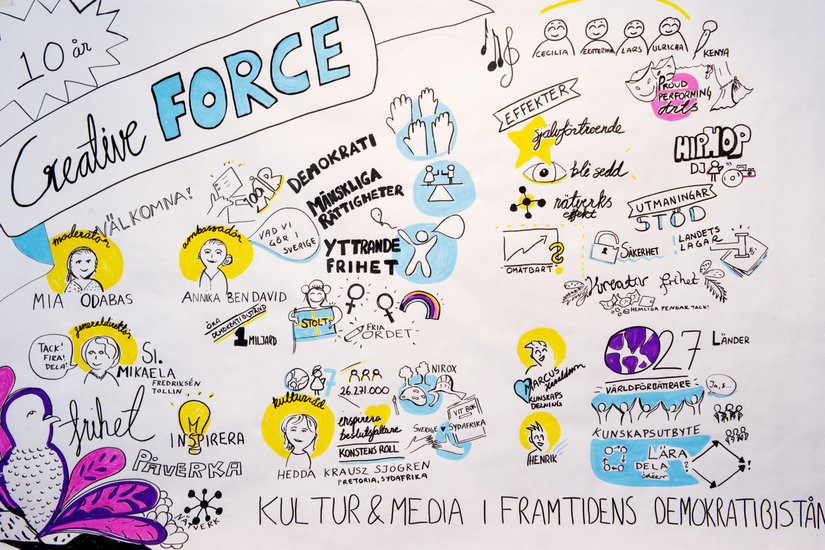 10 år
Creative FORCE
VÄLKOMNA!
moderator
MIA ODABAS
ambassadör
ANNIKA BEN DAVID
VAD VI
GÖR I
SVERIGE
DEMOKRATI
MÄNSKLIGA
RÄTTIGHETER
YTTRANDE
FRIHET
ÖKA
DEMOKRATIBISTÅND
1 MILJARD
STOLT
FRIA
ORDET
generaldirektör
TACK!
FIRA!
DELA!
SI.
MIKAELA
FREDRIKSÉN
TOLLIN
frihet
INSPIRERA
PÅVERKA
NÄTVERK
kulturråd
HEDDA KRAUSZ SJÖGREN
PRETORIA, SYDAFRIKA
7
26.271.000
inspirera
beslutsfattare
KONSTENS ROLL
NIROX
VIT BOK
SVERIGE
SYDAFRIKA
CECILIA
EKATERINA
LARS
ULRICHA
KENYA
PROUD
PERFORMING
Arts
EFFEKTER
självförtroende
bli sedd
nätverks
effekt
OMÄTBART ?
HIPHOP
DJ
UTMANINGAR
STÖD
SÄKERHET
LANDETS
LAGAR
Kreativ frihet
@HEMLIGA PENGAR TACK!
MARCUS
KUNSKAPS
DELNING
HENRIK
27 LÄNDER
VÄRLDFÖRBÄTTRARE
KUNSKAPSUTBYTE
LÄRA
DELA
idéer
KULTUR & MEDIA I FRAMTIDENS DEMOKRATIBISTÅN